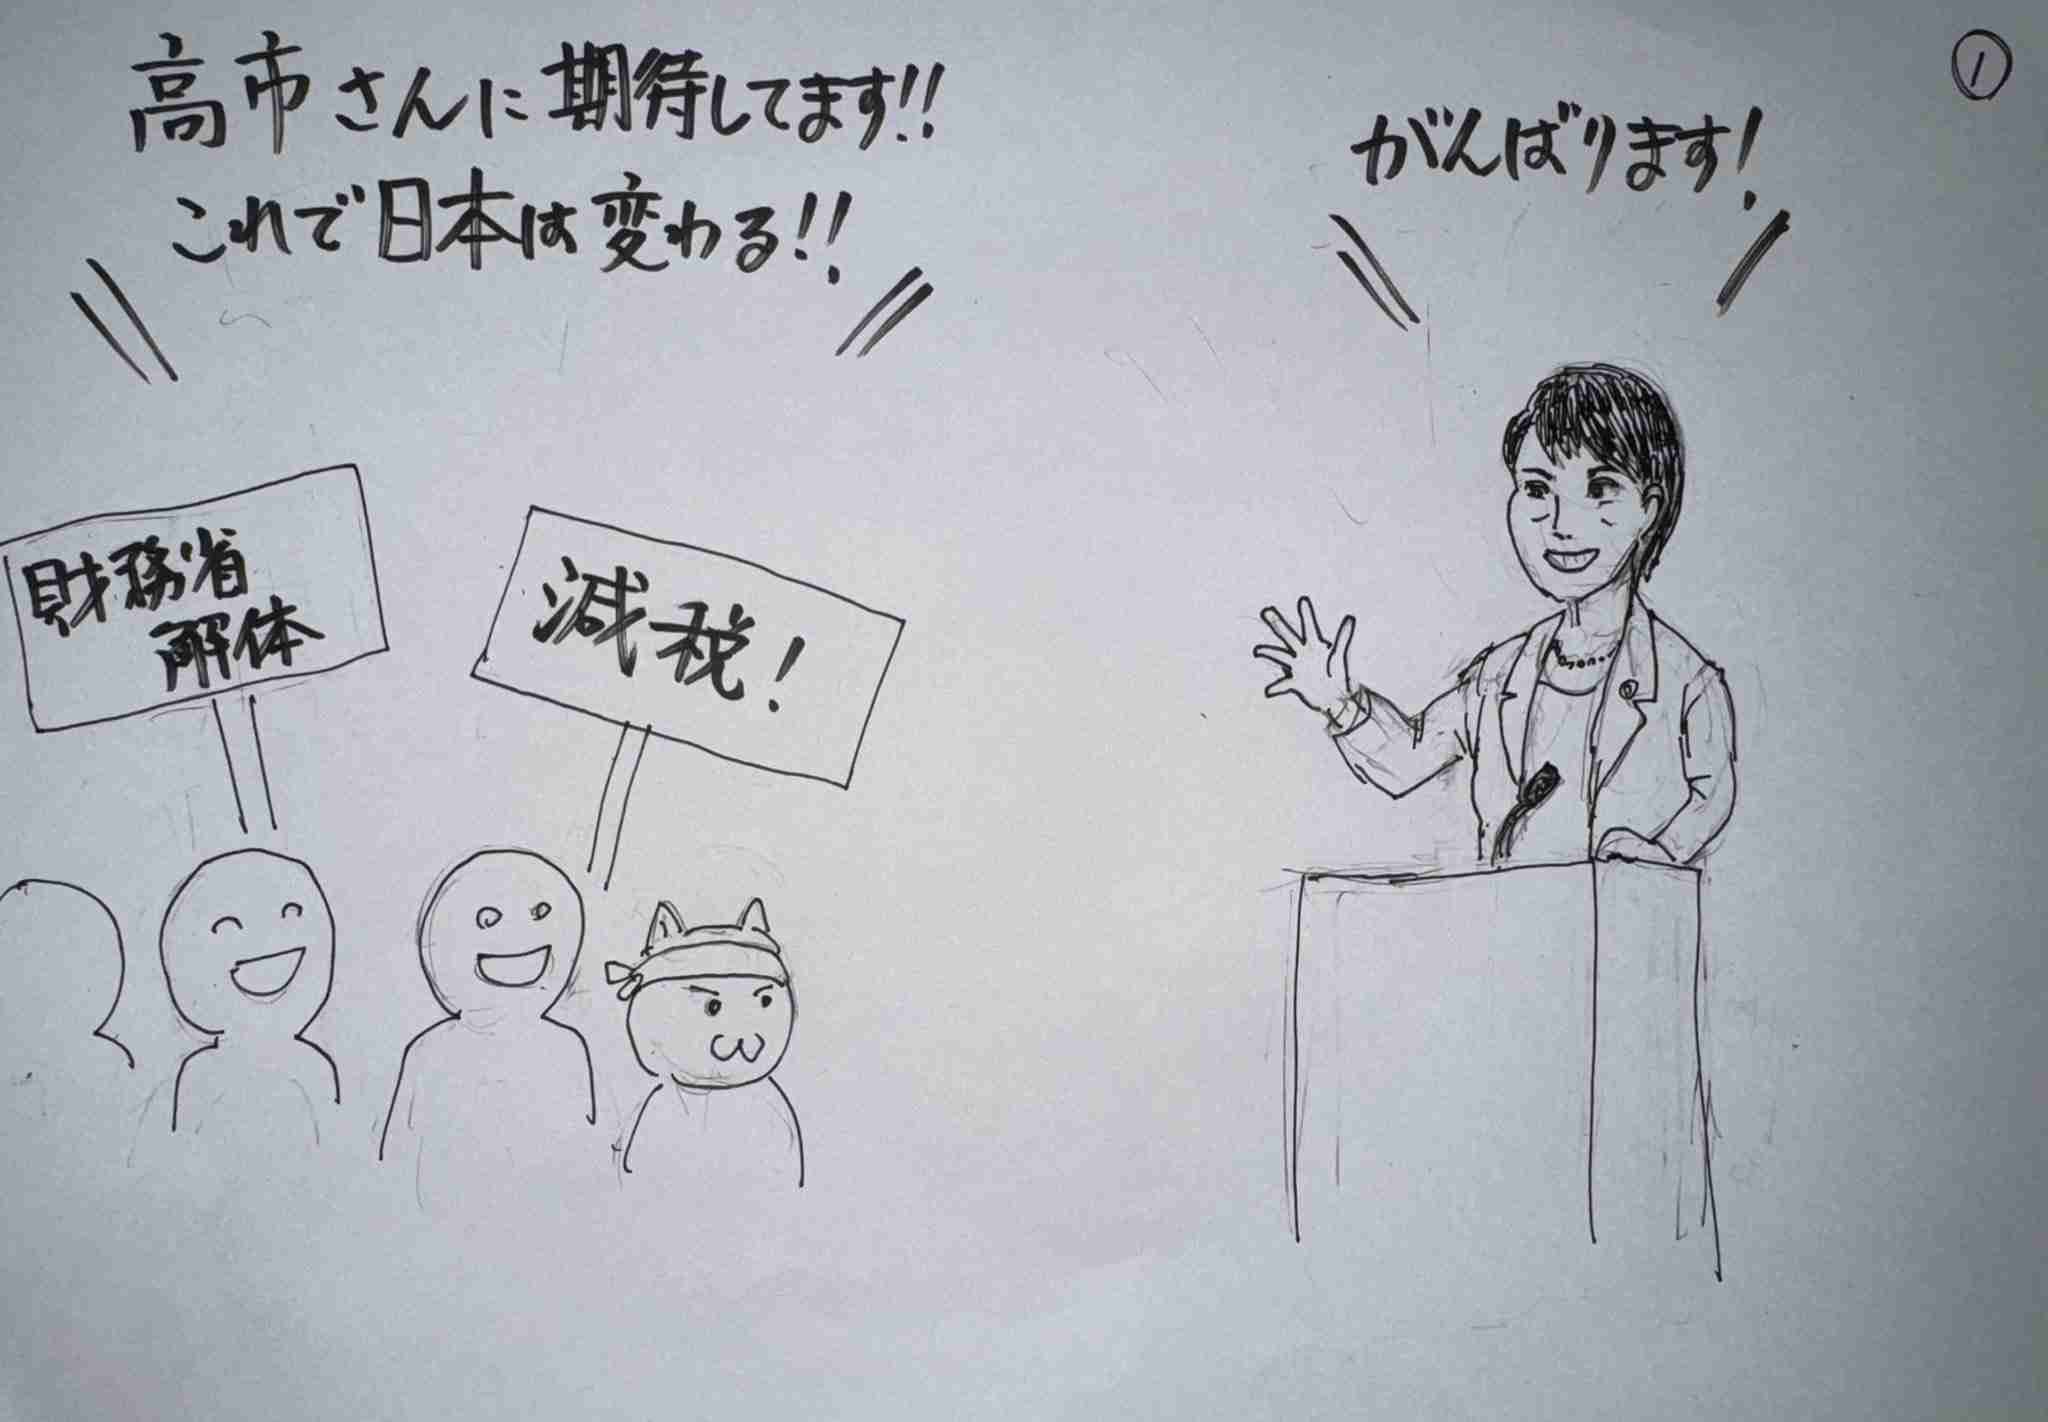 ①
高市さんに期待してます!!
これで日本は変わる!!
がんばります!
財務省
解体
減税!